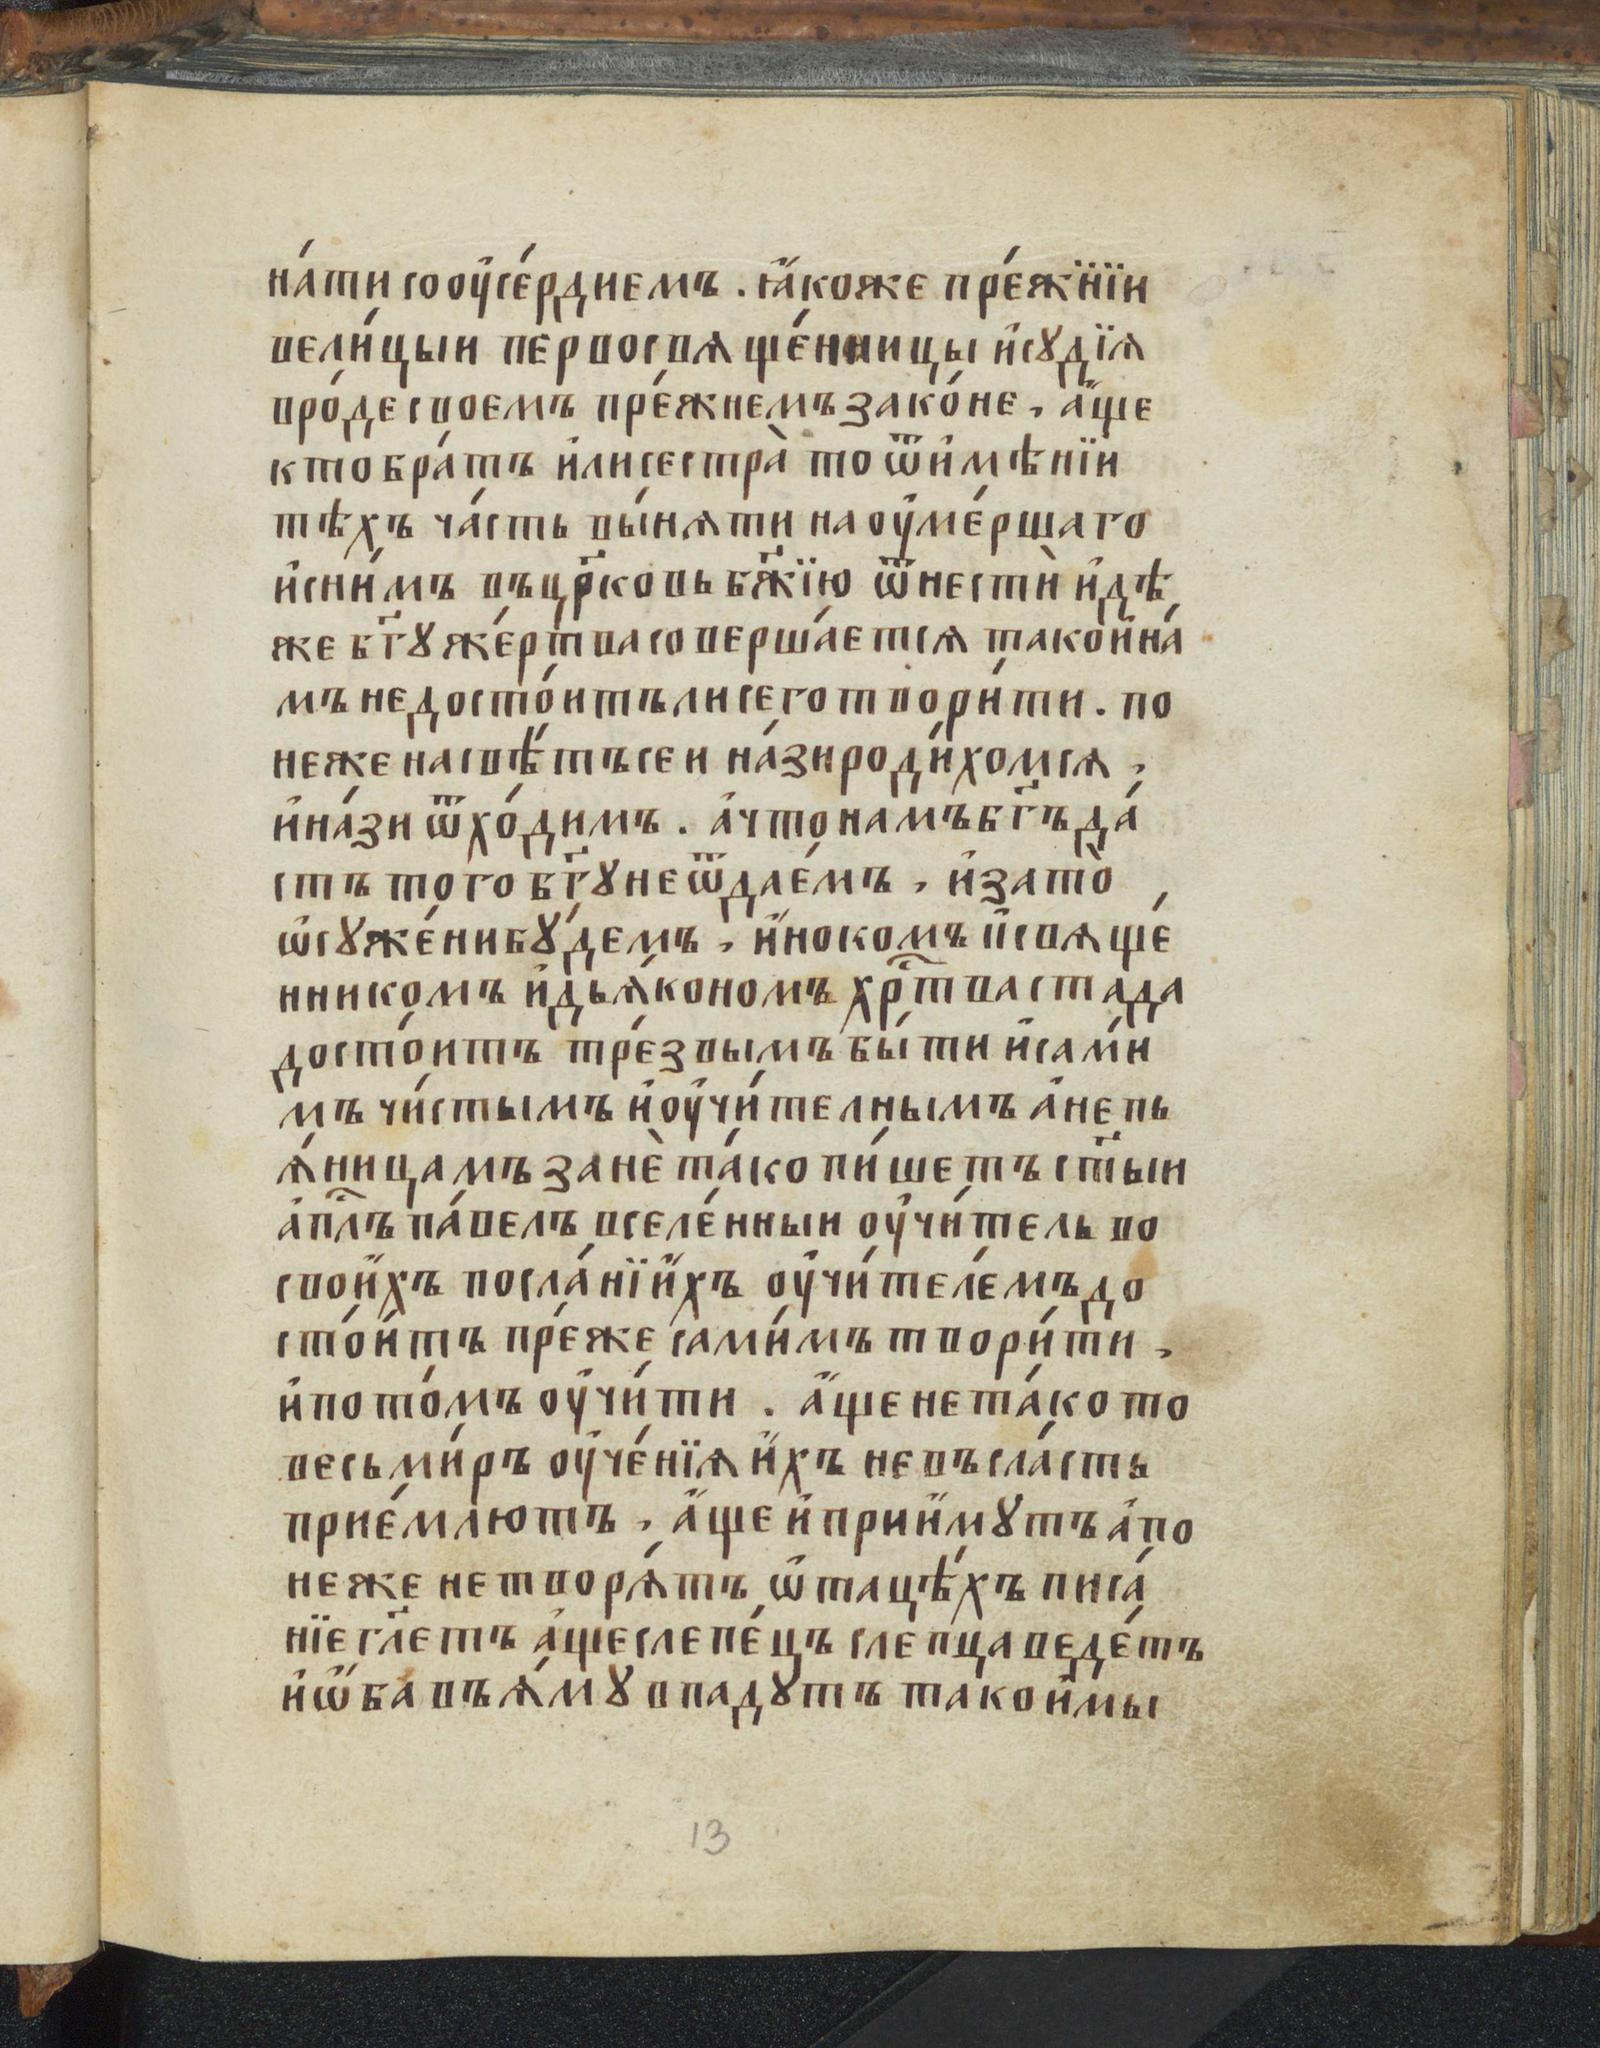 на́ти со ᲂу҆се́рдиемъ. ꙗ҆́коже пре́жнїи
вели́цыи первосвѧще́нницы и҆сꙋдїѧ
вро́де своемъ пре́жнемъ зако́не, а҆́ще
кто бра́тъ и҆ли сестра̀ то ѿ и҆мѣнїи
тѣхъ ча́сть вы́нѧти на ᲂу҆ме́ршаго
и҆сни́мъ въ цр҃ковь бж҃їю ѿнестѝ и҆дѣ
же бг҃ꙋ же́ртва совершае́тсѧ тако и҆на́
мъ недосто́итъ ли сего твори́ти. по
неже насвѣ́тъ сеи на́зи роди́хомсѧ,
и҆на́зи ѿхо́димъ. а҆что намъ бг҃ъ да́
стъ того бг҃ꙋ не ѿдае́мъ, и҆зато̀
ѡ҆сꙋже́ни бꙋ́демъ, и҆́нокомъ и҆свѧще́
нникомъ и҆дьѧ́кономъ хр҃това стада
досто́итъ тре́звымъ бы́ти и҆сами́
мъ чи́стымъ и҆ᲂу҆чи́телнымъ а҆не пь
ѧ́ницамъ занѐ та́ко пи́шетъ ст҃ыи
а҆пл҃ъ па́велъ вселе́нныи ᲂу҆чи́тель во
свои҆́хъ посла́нїи҆хъ ᲂу҆чи́теле́мъ до
сто́и҆тъ пре́же сами́мъ твори́ти,
и҆пото́мъ ᲂу҆чи́ти. а҆́ще не та́ко то
весь ми́ръ ᲂу҆че́нїѧ и҆́хъ не въ сла́сть
прие́млютъ, а҆́ще и҆ прии҆́мꙋтъ а҆по
неже не творѧ́тъ ѡ҆тацѣ́хъ писа́
нїе гл҃етъ а҆́ще слепе́цъ слепца веде́тъ
и҆ ѡ҆́ба въ ѧ҆́мꙋ впадꙋтъ тако и҆мы
13